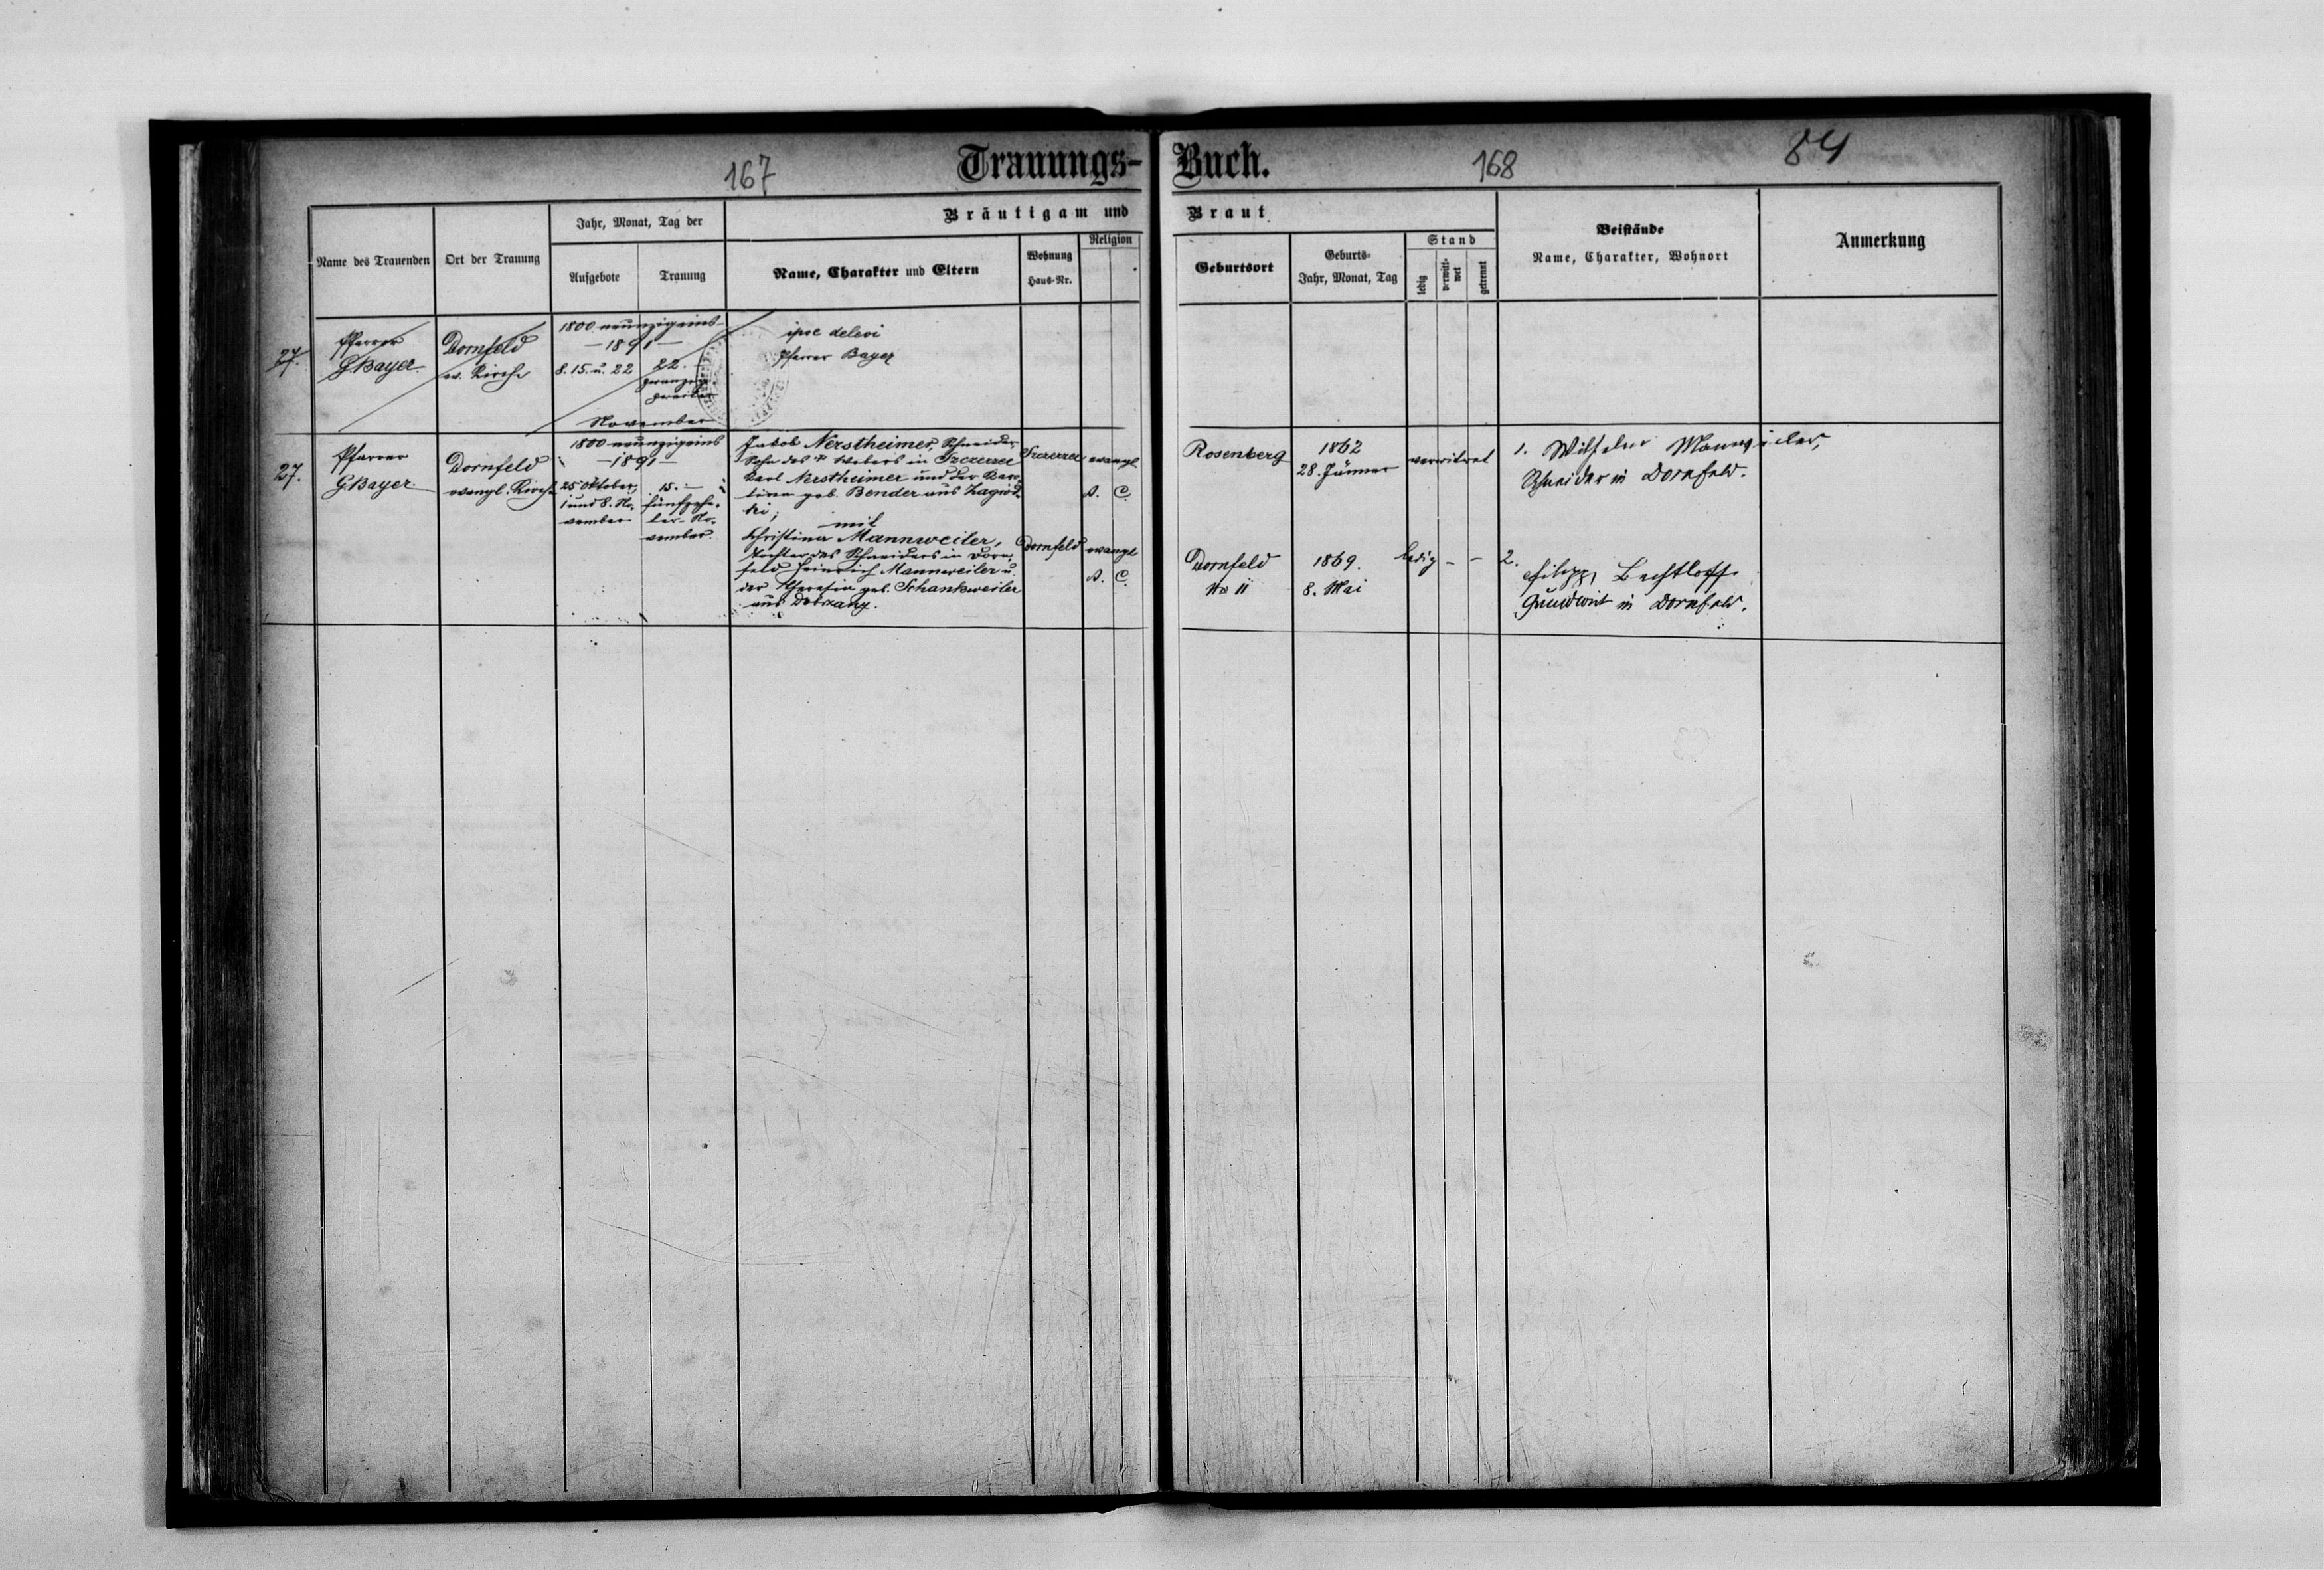 Trauungs-Buch.
167
168
84
Name des Trauenden
Ort der Trauung
Jahr, Monat, Tag der
Aufgebote
Trauung
Bräutigam und Braut
Name, Charakter und Eltern
Wohnung
Haus-Nr.
Religion
Geburtsort
Geburts-
Jahr, Monat, Tag
Stand
ledig
verwitt-
wet
getrennt
Beistände
Name, Charakter, Wohnort
Anmerkung
27.
Pfarrer
G. Bayer
Dornfeld
ev. Kirche
1800 neunzigeins
– 1891 –
8. 15. u. 22
22.
zwanzig
zweiter
November
ipse delevi
Pfarrer Bayer
27.
Pfarrer
G. Bayer
Dornfeld
evangl. Kirche
1800 neunzigeins
– 1891 –
25 Oktober,
1 und 8. No-
vember
15. –
fünfzehn-
ter No-
vember.
Jakob Nerstheimer, Schneider,
Sohn des Webers in Szczerzec
Karl Nerstheimer und der Karo-
lina geb. Bender aus Zagród-
ki;
mit
Christina Mannweiler,
Tochter des Schneiders in Dorn-
feld Heinrich Mannweiler u.
der Theresia geb. Schankweiler
aus Dobrzany.
Szczerzec
evangl.
A. C.
Dornfeld
evangl
A. C.
Rosenberg
1862
28. Jänner
verwitwet
1. Wilhelm Mannweiler,
Schneider in Dornfeld.
Dornfeld
No 11
1869.
8. Mai
ledig - -
2.
Filipp Bechtloff
Grundwirt in Dornfeld.